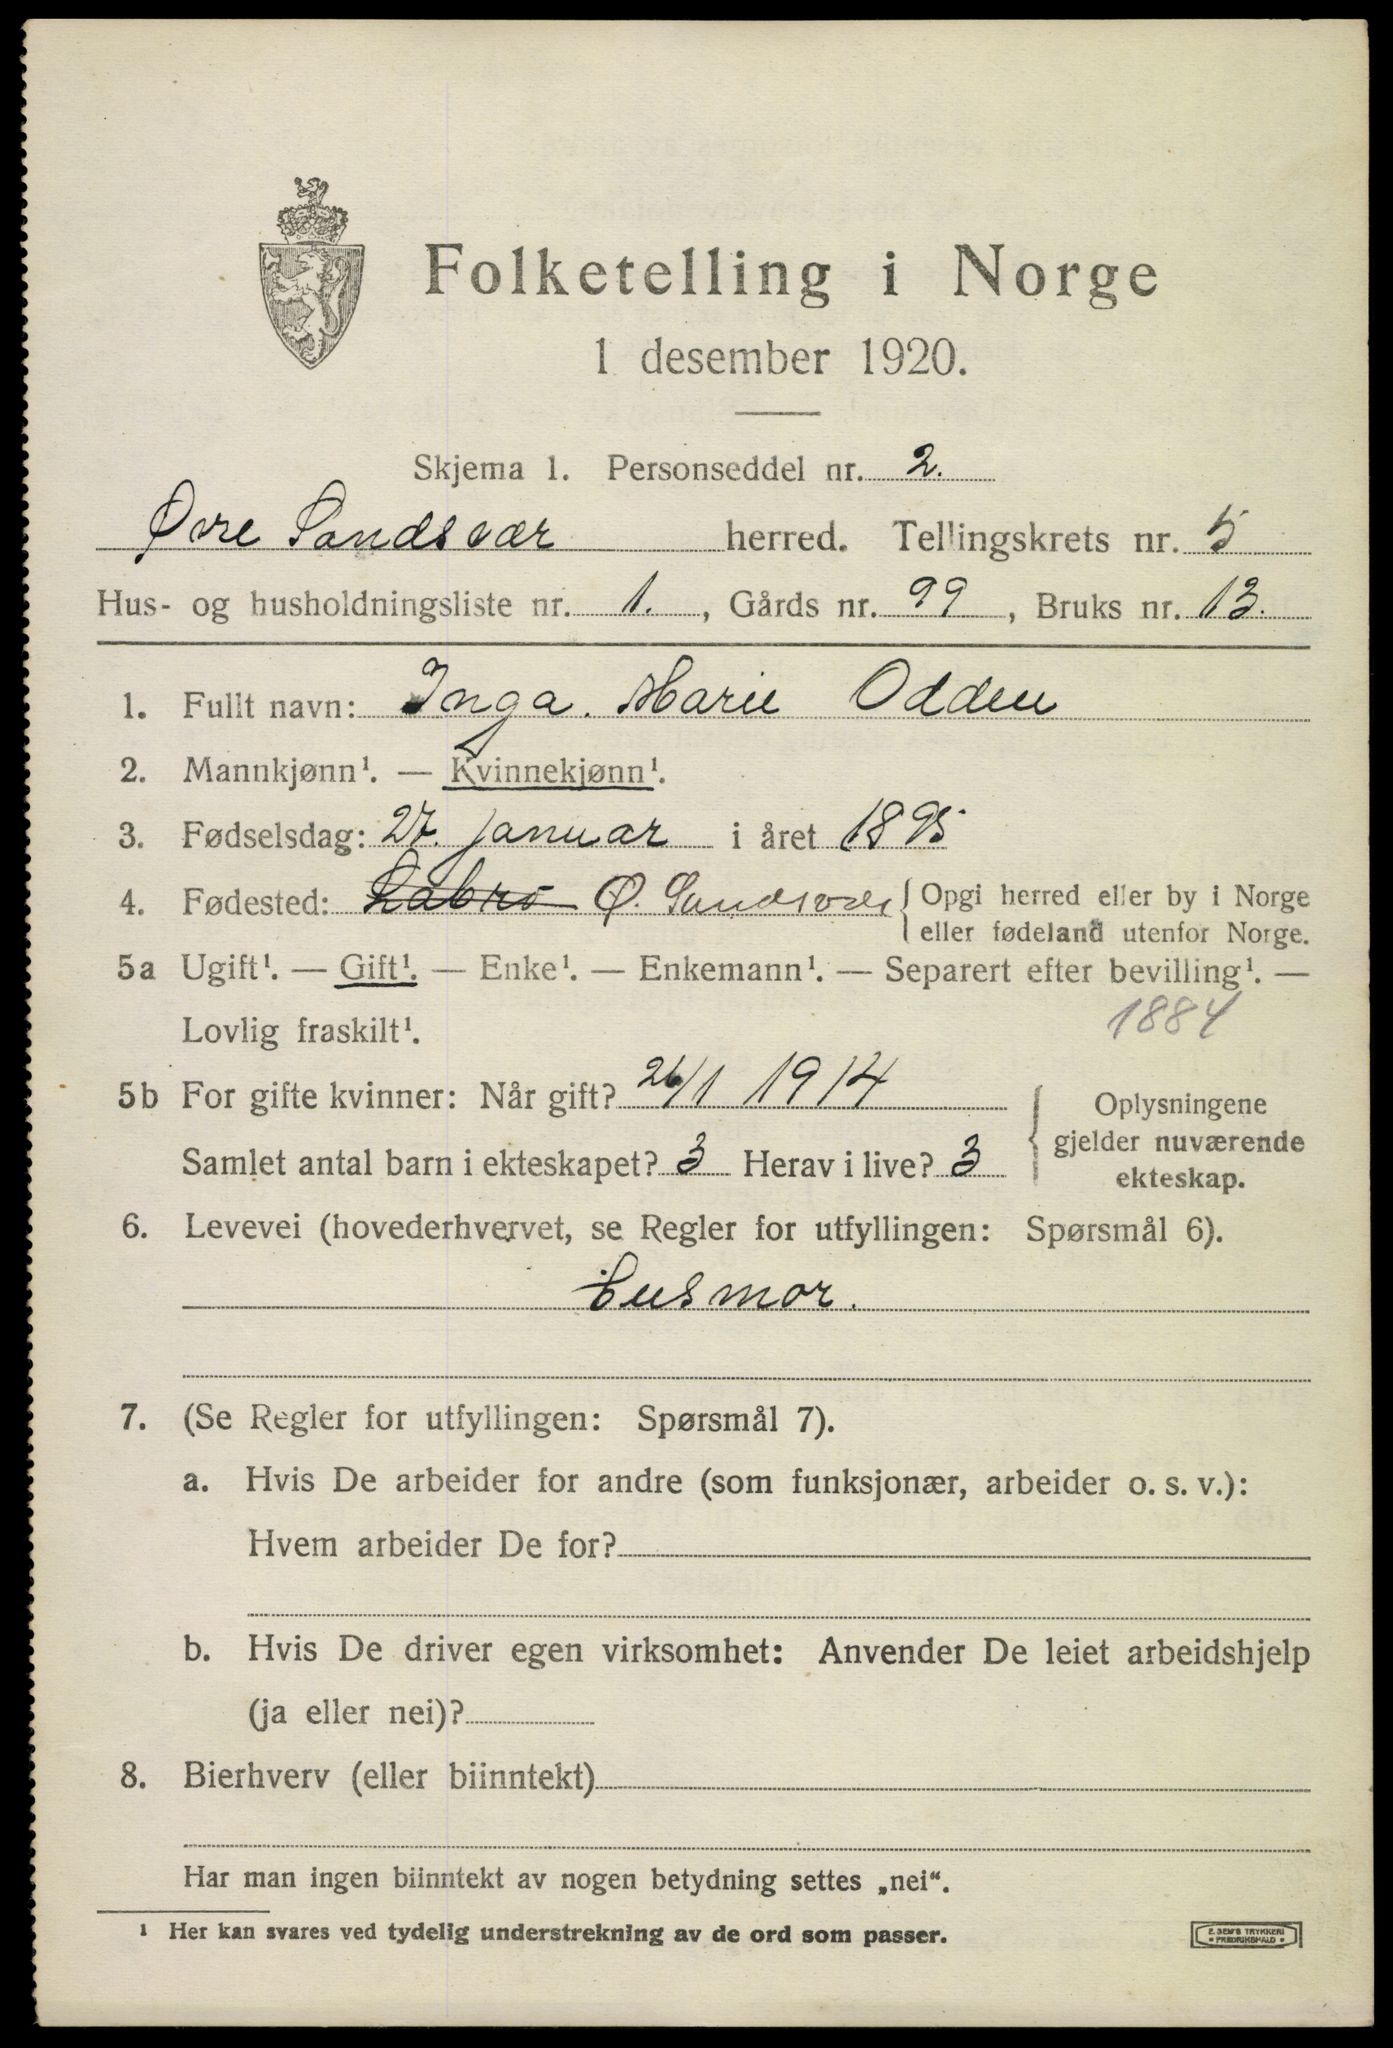 Folketelling i Norge
1 desember 1920.
Skjema 1. Personseddel nr. 2.
Øvre Sandsvær herred. Tellingskrets nr. 5
Hus- og husholdningsliste nr. 1., Gårds nr. 99, Bruks nr. 13.
1. Fullt navn: Inga. Marie Odden
2. Mannkjønn¹. — Kvinnekjønn¹.
3. Fødselsdag: 27. januar i året 1895
4. Fødested: Labro Ø. Sandsvær { Opgi herred eller by i Norge
eller fødeland utenfor Norge.
5a Ugift¹. — Gift¹. — Enke¹. — Enkemann¹. — Separert efter bevilling¹. —
Lovlig fraskilt¹. 1884
5b For gifte kvinner: Når gift? 26/1 1914 { Oplysningene
gjelder nuværende
ekteskap.
Samlet antal barn i ekteskapet? 3 Herav i live? 3
6. Levevei (hovederhvervet, se Regler for utfyllingen: Spørsmål 6).
Husmor.
7. (Se Regler for utfyllingen: Spørsmål 7).
a. Hvis De arbeider for andre (som funksjonær, arbeider o. s. v.):
Hvem arbeider De for?
b. Hvis De driver egen virksomhet: Anvender De leiet arbeidshjelp
(ja eller nei)?
8. Bierhverv (eller biinntekt)
Har man ingen biinntekt av nogen betydning settes „nei“.
¹ Her kan svares ved tydelig understrekning av de ord som passer.
E. SEM'S TRYKKERI
• FREDRIKSHALD •